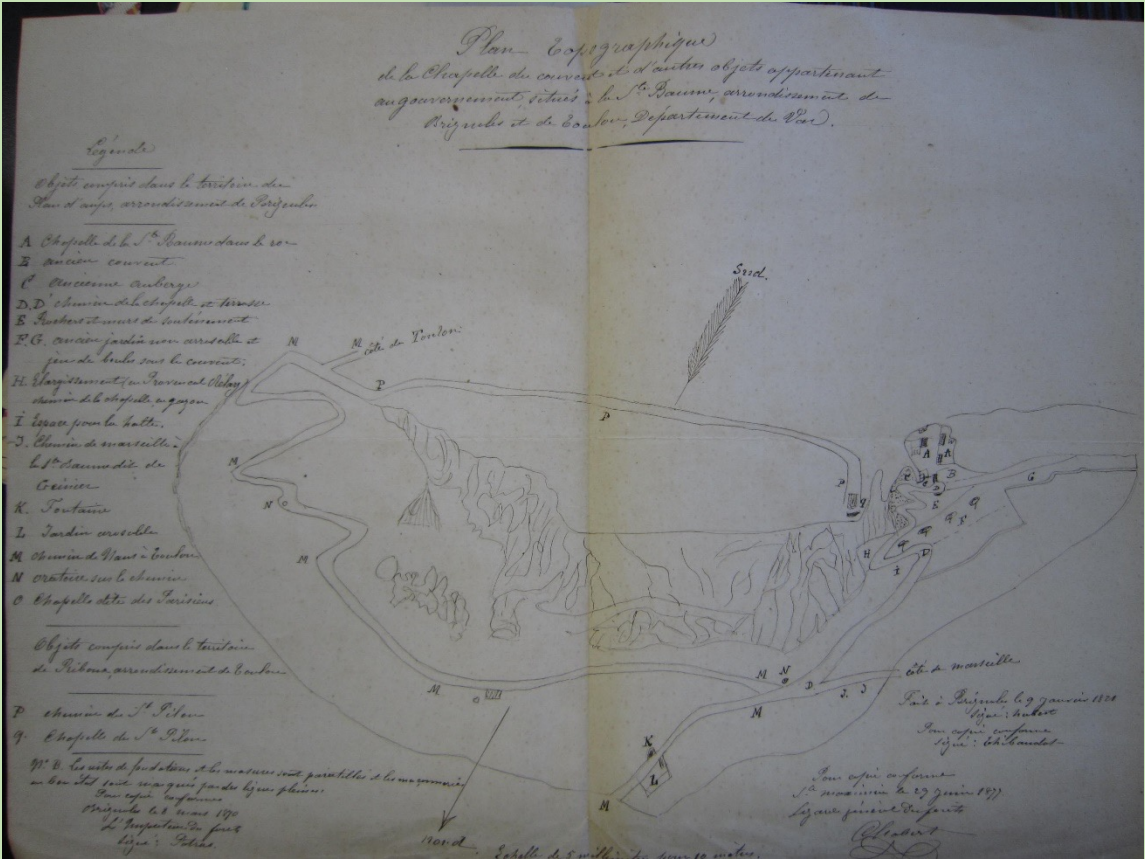 Plan Topographique
de la Chapelle du couvent et d'autres objets appartenant
au gouvernement, situés à la Ste Baume, arrondissement de
Brignoles et de Toulon, Département du Var.
Légende
Objets compris dans le territoire du
Plan d'aups, arrondissement de Brignoles
A Chapelle de la Ste Baume dans le roc
B ancien couvent
C ancienne auberge
D, D' chemin de la chapelle et terrasse
E Rochers et murs de soutènement
F. G. ancien jardin non arrosable et
jeu de boules sous le couvent.
H Elargissement en Provencal
chemin de la chapelle en gazon
I Espace pour la halte.
J. Chemin de marseille à
la Ste Baume dit de
K. Fontaine
L Jardin arrosable
M chemin de Nans à Toulon
N oratoire sur le chemin
O Chapelle dite des Parisiens
Objets compris dans le territoire
de Riboux, arrondissement de Toulon
P chemin du St Pilon
q. Chapelle du St Pilon
Nta B. Les restes de fondations et les masures sont pointillés et les maçonneries
en bon état sont marqués par des lignes pleines.
Pour copie conforme
Brignoles le 8 mars 1870
L'Inspecteur des forêts
Signé:
Sud.
M
M côté de Toulon
P
P
M
N
M
P
q
A
A
B
B
G
E
H
I
D
M
N
M
D
J. J
côté de marseille
M
O
K
L
M
Nord
Fait à Brignoles le 9 janvier 1821
Signé:
Pour copie conforme
Signé: Thibaudot
Pour copie conforme
St maximin le 27 juin 1877
Le garde général des forêts
Echelle de 5 pour 10 metres.